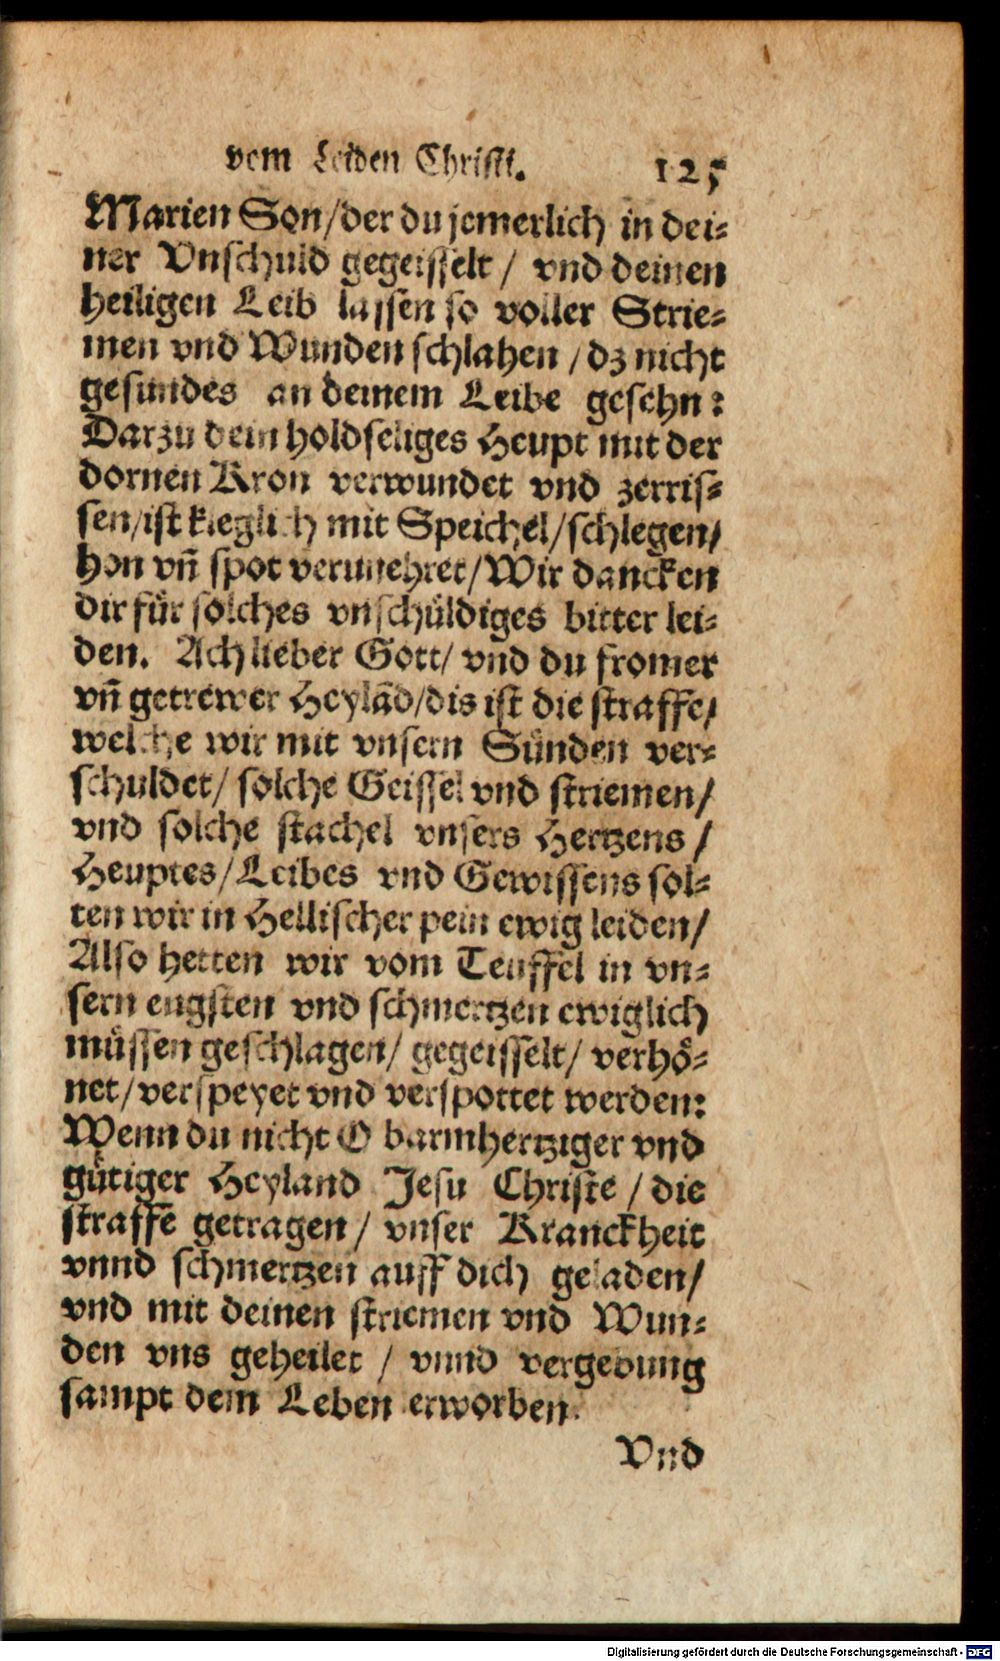 vom Leiden Christi. 125
Marien Son/der du jemerlich in dei-
ner Vnschuld gegeisselt / vnd deinen
heiligen Leib lassen so voller Strie-
men vnd Wunden schlahen / dz nicht
gesundes an deinem Leibe gesehn:
Darzu dein holdseliges Heupt mit der
dornen Kron verwundet vnd zerris-
sen/ist kleglich mit Speichel/schlegen/
hon vñ spot verunehret/Wir dancken
dir für solches vnschüldiges bitter lei-
den. Ach lieber Gott/ vnd du fromer
vñ getrewer Heylãd/dis ist die straffe/
welche wir mit vnsern Sünden ver-
schuldet/ solche Geissel vnd striemen/
vnd solche stachel vnsers Hertzens /
Heuptes/Leibes vnd Gewissens sol-
ten wir in Hellischer pein ewig leiden/
Also hetten wir vom Teuffel in vn-
sern engsten vnd schmertzen ewiglich
müssen geschlagen/ gegeisselt/ verhö-
net/verspeyet vnd verspottet werden:
Wenn du nicht O barmhertziger vnd
gütiger Heyland Jesu Christe / die
straffe getragen/ vnser Kranckheit
vnnd schmertzen auff dich geladen/
vnd mit deinen striemen vnd Wun-
den vns geheilet / vnnd vergebung
sampt dem Leben erworben.
Vnd
Digitalisierung gefördert durch die Deutsche Forschungsgemeinschaft - DFG